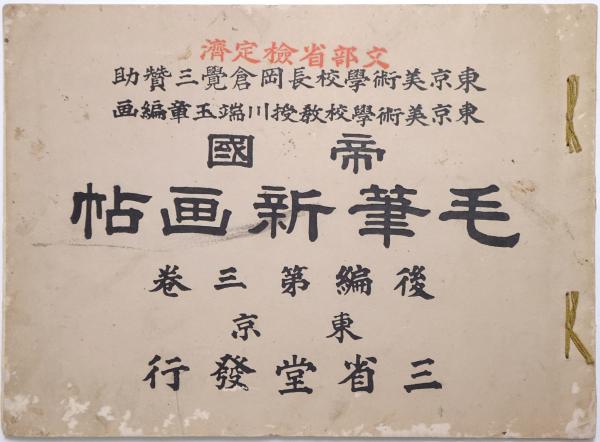 文部省檢定濟
東京美術學校長岡倉覺三贊助
東京美術學校教授川端玉章編画
帝國
毛筆新画帖
後編第三卷
東京
三省堂發行